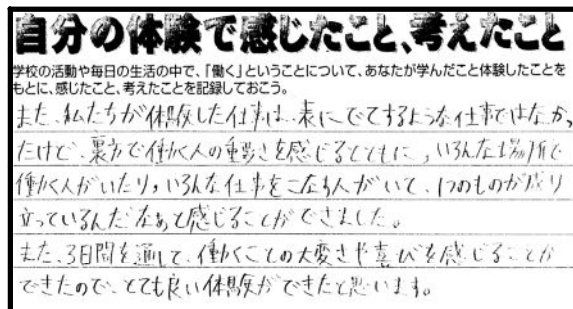 自分の体験で感じたこと、考えたこと
学校の活動や毎日の生活の中で、「働く」ということについて、あなたが学んだこと体験したことを
もとに、感じたこと、考えたことを記録しておこう。
また、私たちが体験した仕事は、表にでてするような仕事ではなかっ
たけど、裏方で働く人の重要さを感じるとともに、いろんな場所で
働く人がいたり、いろんな仕事をこなす人がいて、1つのものが成り
立っているんだなぁと感じることができました。
また、3日間を通して、働くことの大変さや喜びを感じることが
できたので、とても良い体験ができたと思います。